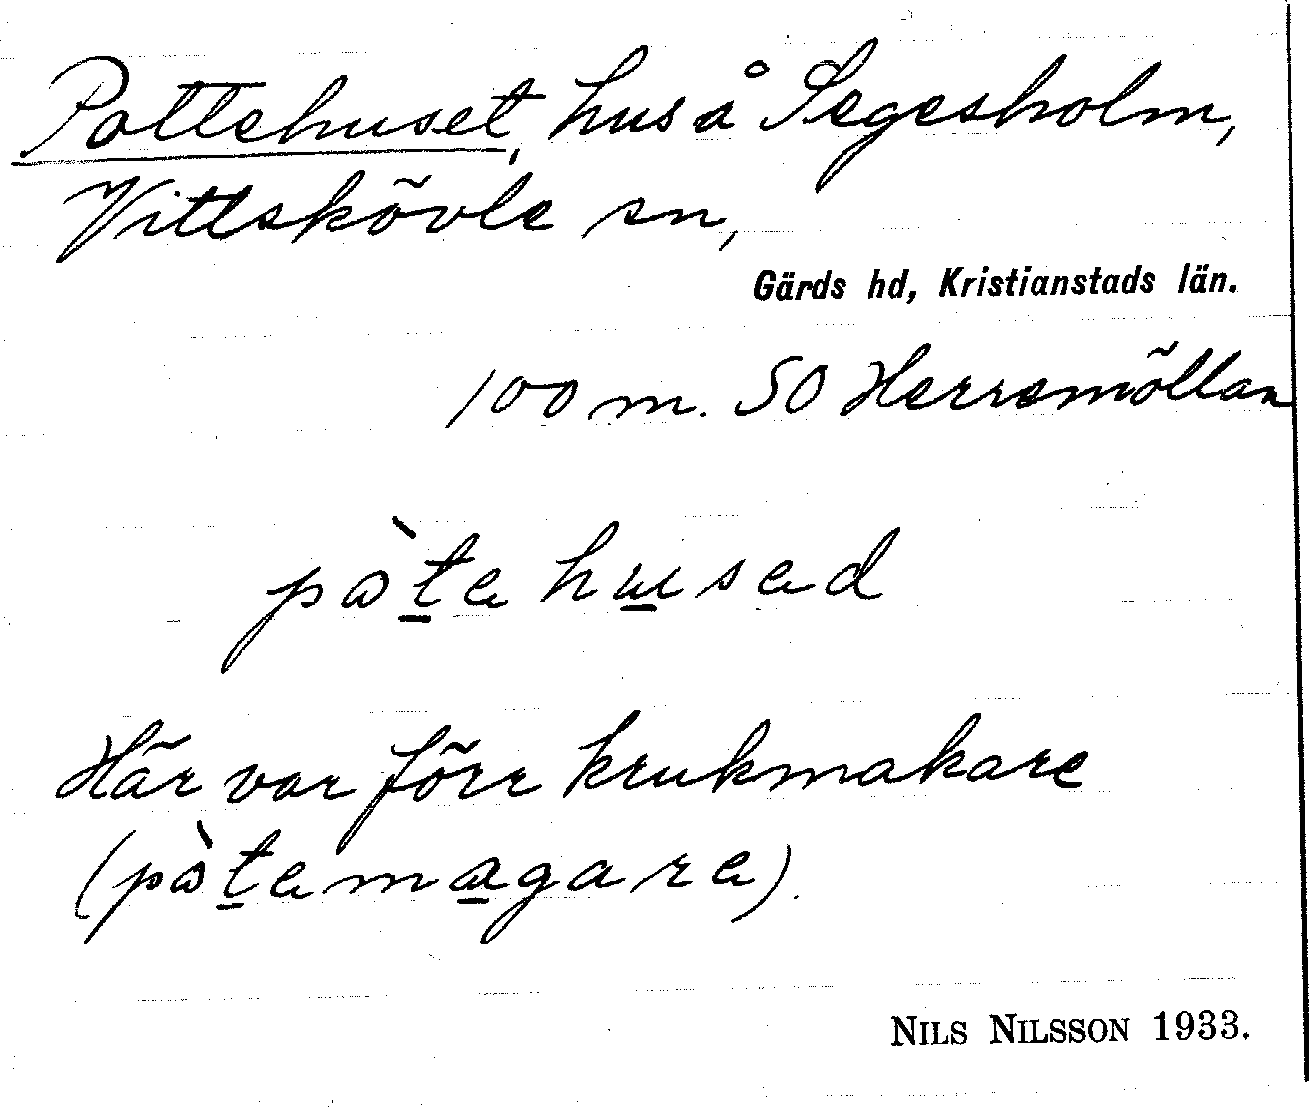 Pottehuset, hus å Segesholm,
Vittskövle sn,
Gärds hd, Kristianstads län.
100 m. SO Herremöllan
pàt̲e hu̲sed
Här var förr krukmakare
(pàt̲ema̲gare).
NILS NILSSON 1933.